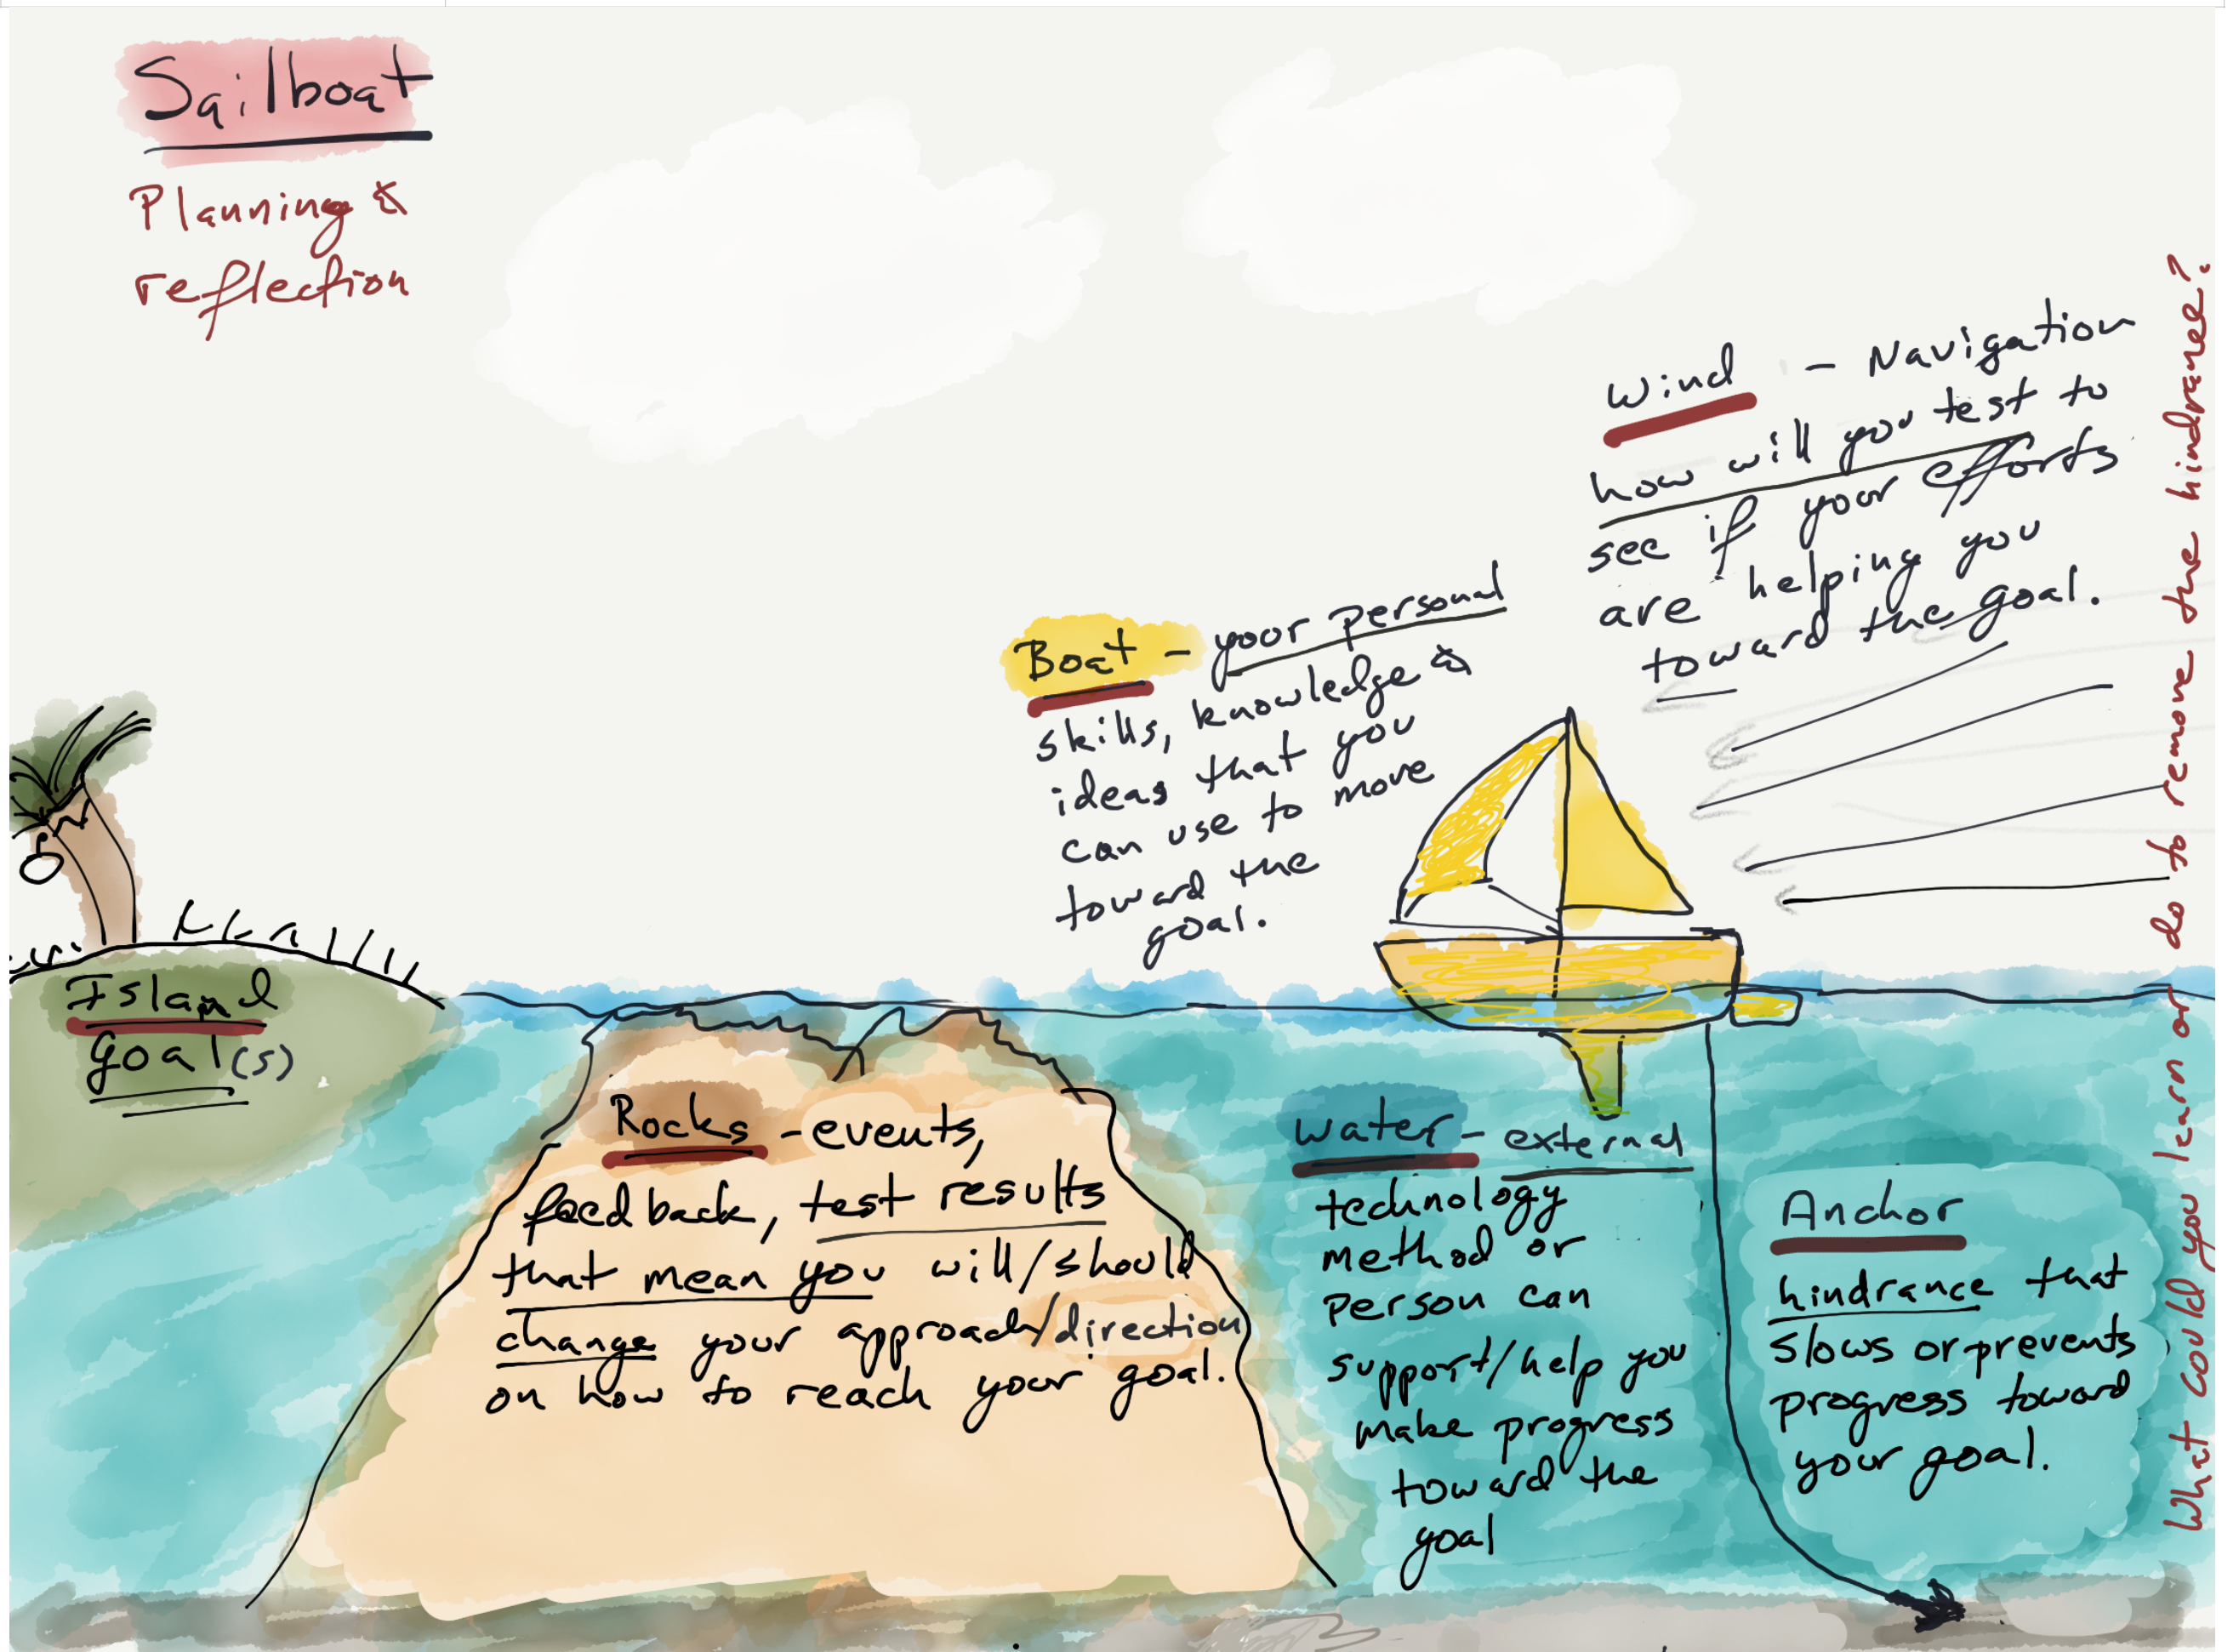 Sailboat
Planning &
reflection
Wind - Navigation
how will you test to
see if your efforts
are helping you
toward the goal.
Boat - your personal
skills, knowledge &
ideas that you
can use to move
toward the
goal.
Island
goal(s)
Rocks - events,
feedback, test results
that mean you will/should
change your approach/direction
on how to reach your goal.
Water - external
technology
method or
person can
support/help you
make progress
toward the
goal
Anchor
hindrance that
slows or prevents
progress toward
your goal.
What could you learn or do to remove the hindrance?